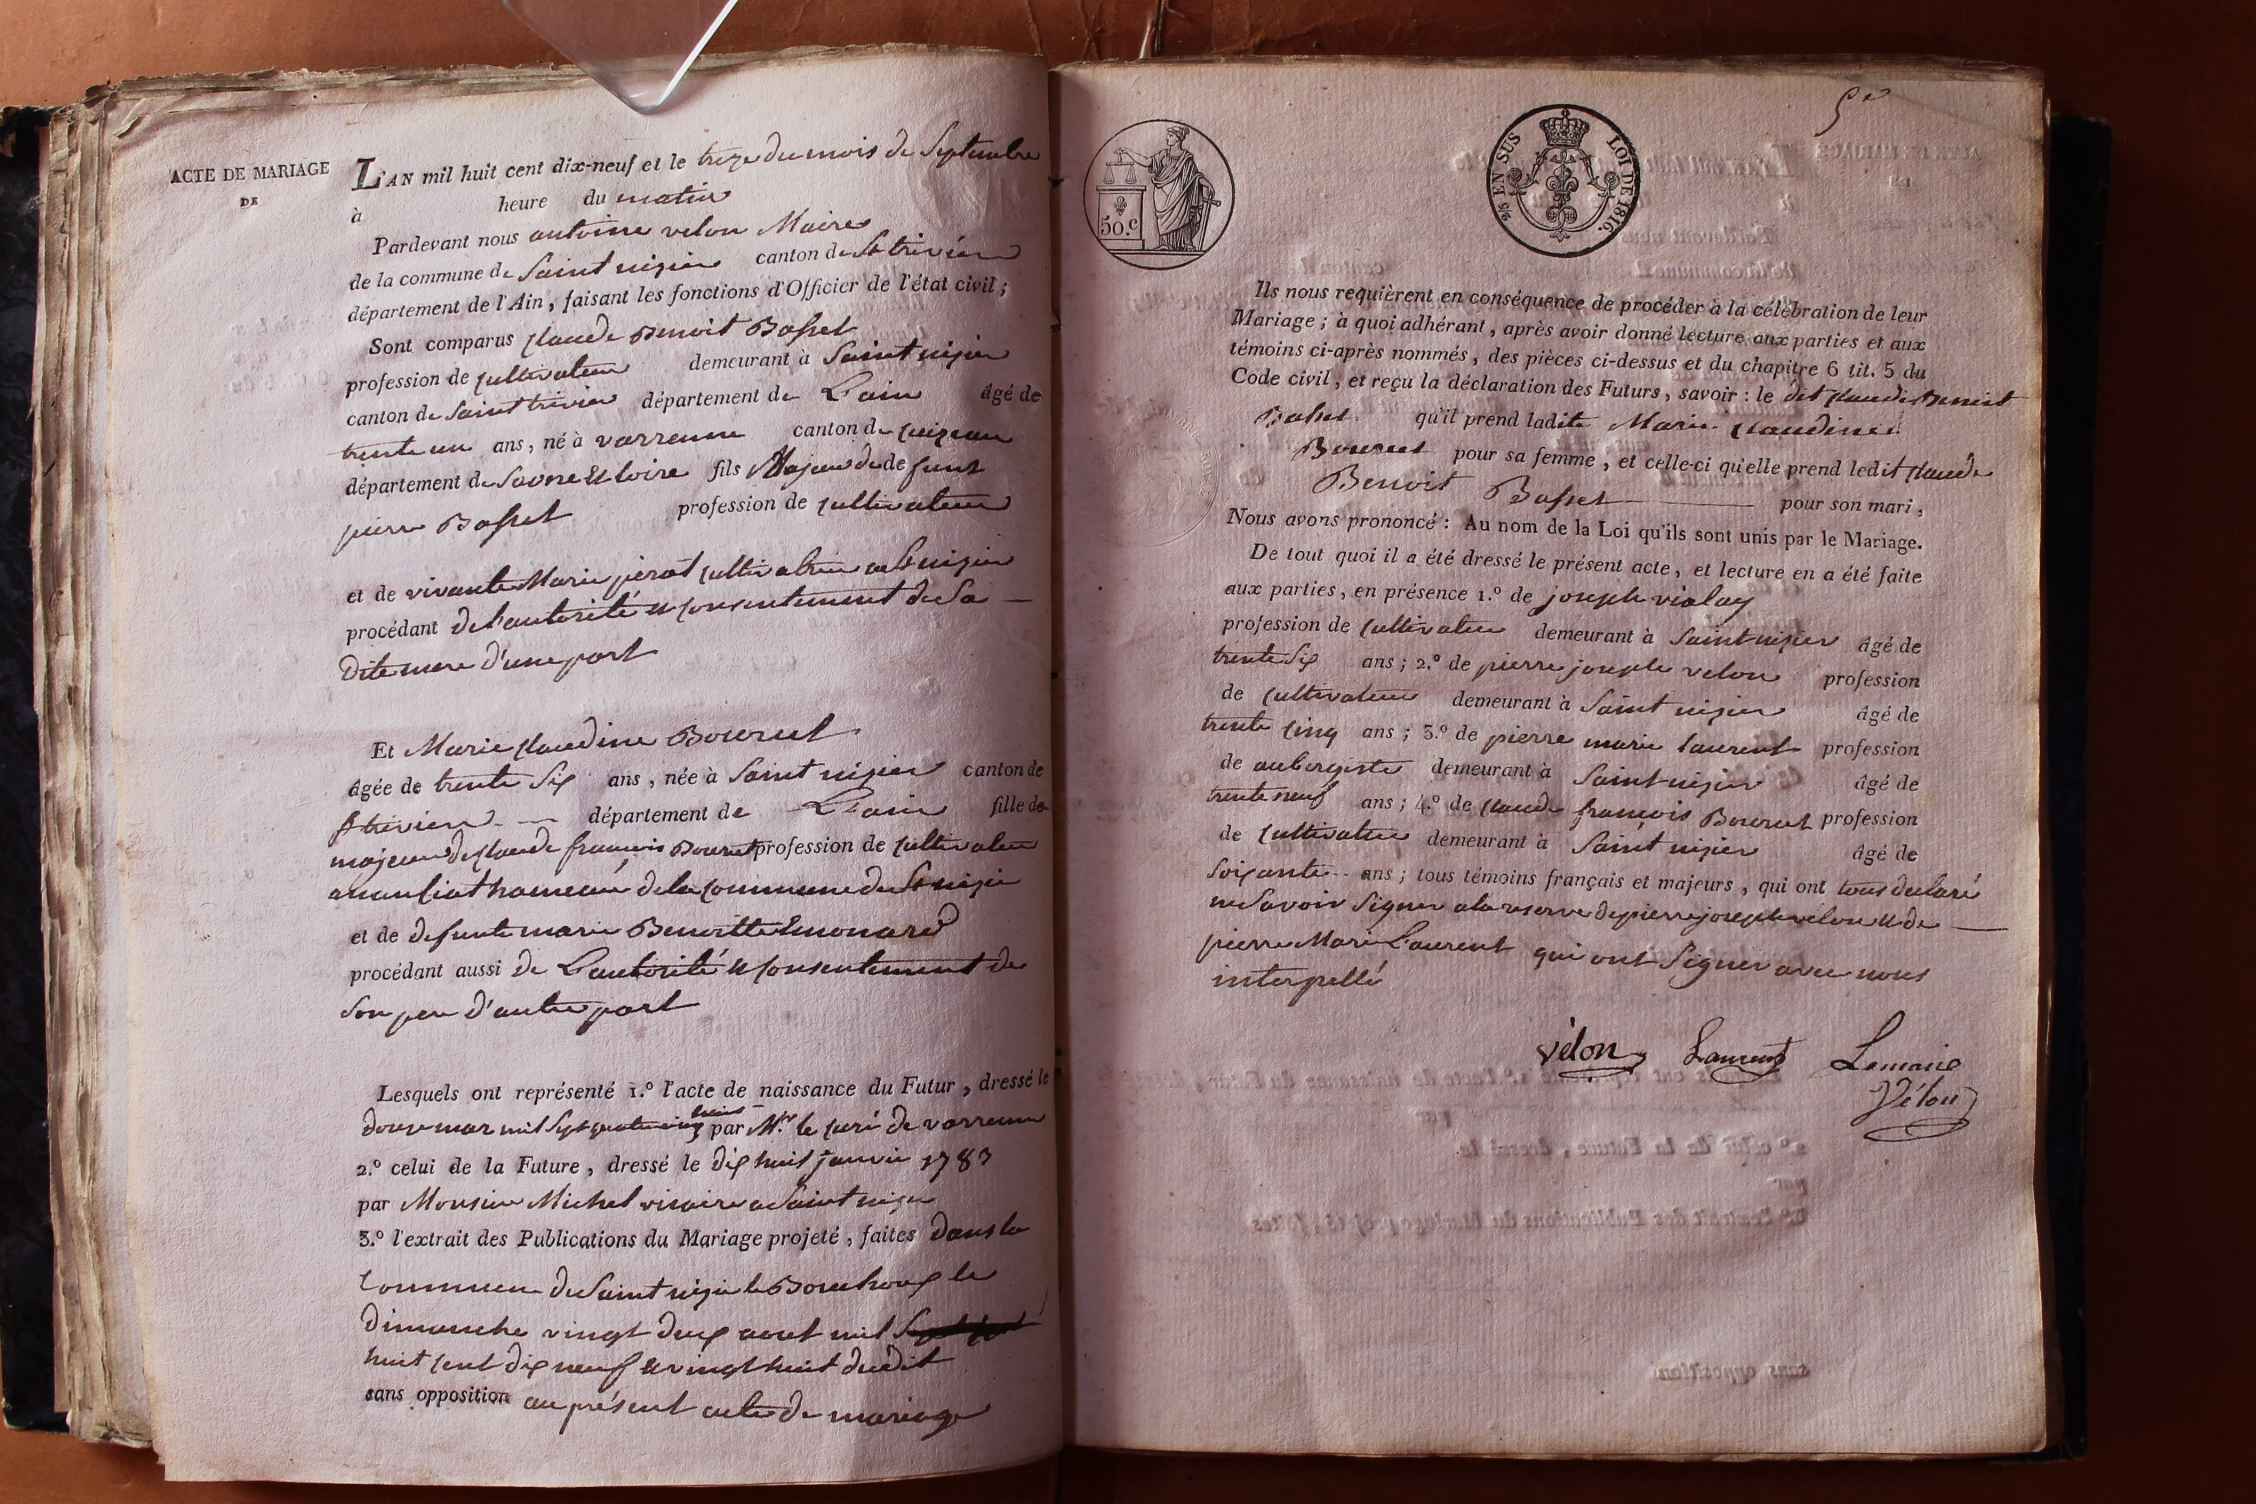 ACTE DE MARIAGE
DE
L'AN mil huit cent dix-neuf et le treze du mois de Septembre
à heure du matin
Pardevant nous antoine velon Maire
de la commune de Saint nizier canton de St trivier
département de l'Ain, faisant les fonctions d'Officier de l'état civil;
Sont comparus claude Benoit Basset
profession de cultivateur demeurant à Saint nizier
canton de Saint trivier département de L'ain âgé de
trente un ans, né à varrenne canton de cuizeau
département de Saone et loire fils Majeur de defunt
pierre Basset profession de cultivateur
et de vivante Marie perat cultivatrice a St nizier
procédant de l'autorité et consentement de Sa
dite mere d'une part
Et Marie claudine Bourcet
âgée de trente Six ans, née à Saint nizier canton de
St trivier département de L'ain fille de
majeure de claude francois Bourcet profession de cultivateur
a hameau de la commune de St nizier
et de defunte marie Benoitte
procédant aussi de L'autorité et consentement de
Son pere d'autre part
Lesquels ont représenté 1.º l'acte de naissance du Futur, dressé le
douze mars mil Sept quatre vingt huit par Mr le curé de varrenne
2.º celui de la Future, dressé le dix huit janvier 1783
par Monsieur Michel vicaire a Saint nizier
3.º l'extrait des Publications du Mariage projeté, faites dans la
commune de Saint nizier le Bouchoux le
dimanche vingt deux aout mil Sept cent
huit cent dix neuf et vingt huit dudit
sans opposition au présent acte de mariage
5e
50.c
2/5 EN SUS LOI DE 1816.
Ils nous requièrent en conséquence de procéder à la célébration de leur
Mariage; à quoi adhérant, après avoir donné lecture aux parties et aux
témoins ci-après nommés, des pièces ci-dessus et du chapitre 6 tit. 5 du
Code civil, et reçu la déclaration des Futurs, savoir: le dit claude Benoit
Basset qu'il prend ladite Marie claudine
Bourcet pour sa femme, et celle-ci qu'elle prend ledit claude
Benoit Basset pour son mari,
Nous avons prononcé: Au nom de la Loi qu'ils sont unis par le Mariage.
De tout quoi il a été dressé le présent acte, et lecture en a été faite
aux parties, en présence 1.º de joseph vialay
profession de cultivateur demeurant à Saint nizier âgé de
trente Six ans; 2.º de pierre joseph velon profession
de cultivateur demeurant à Saint nizier âgé de
trente cinq ans; 3.º de pierre marie laurent profession
de aubergiste demeurant à Saint nizier âgé de
trente neuf ans; 4.º de claude francois Bourcet profession
de cultivateur demeurant à Saint nizier âgé de
Soixante ans; tous témoins français et majeurs, qui ont tous declaré
ne Savoir Signer a la reserve de pierre joseph velon et de
pierre Marie Laurent qui ont Signer avec nous
interpellé
Vélon Laurent Lemaire
Vélon